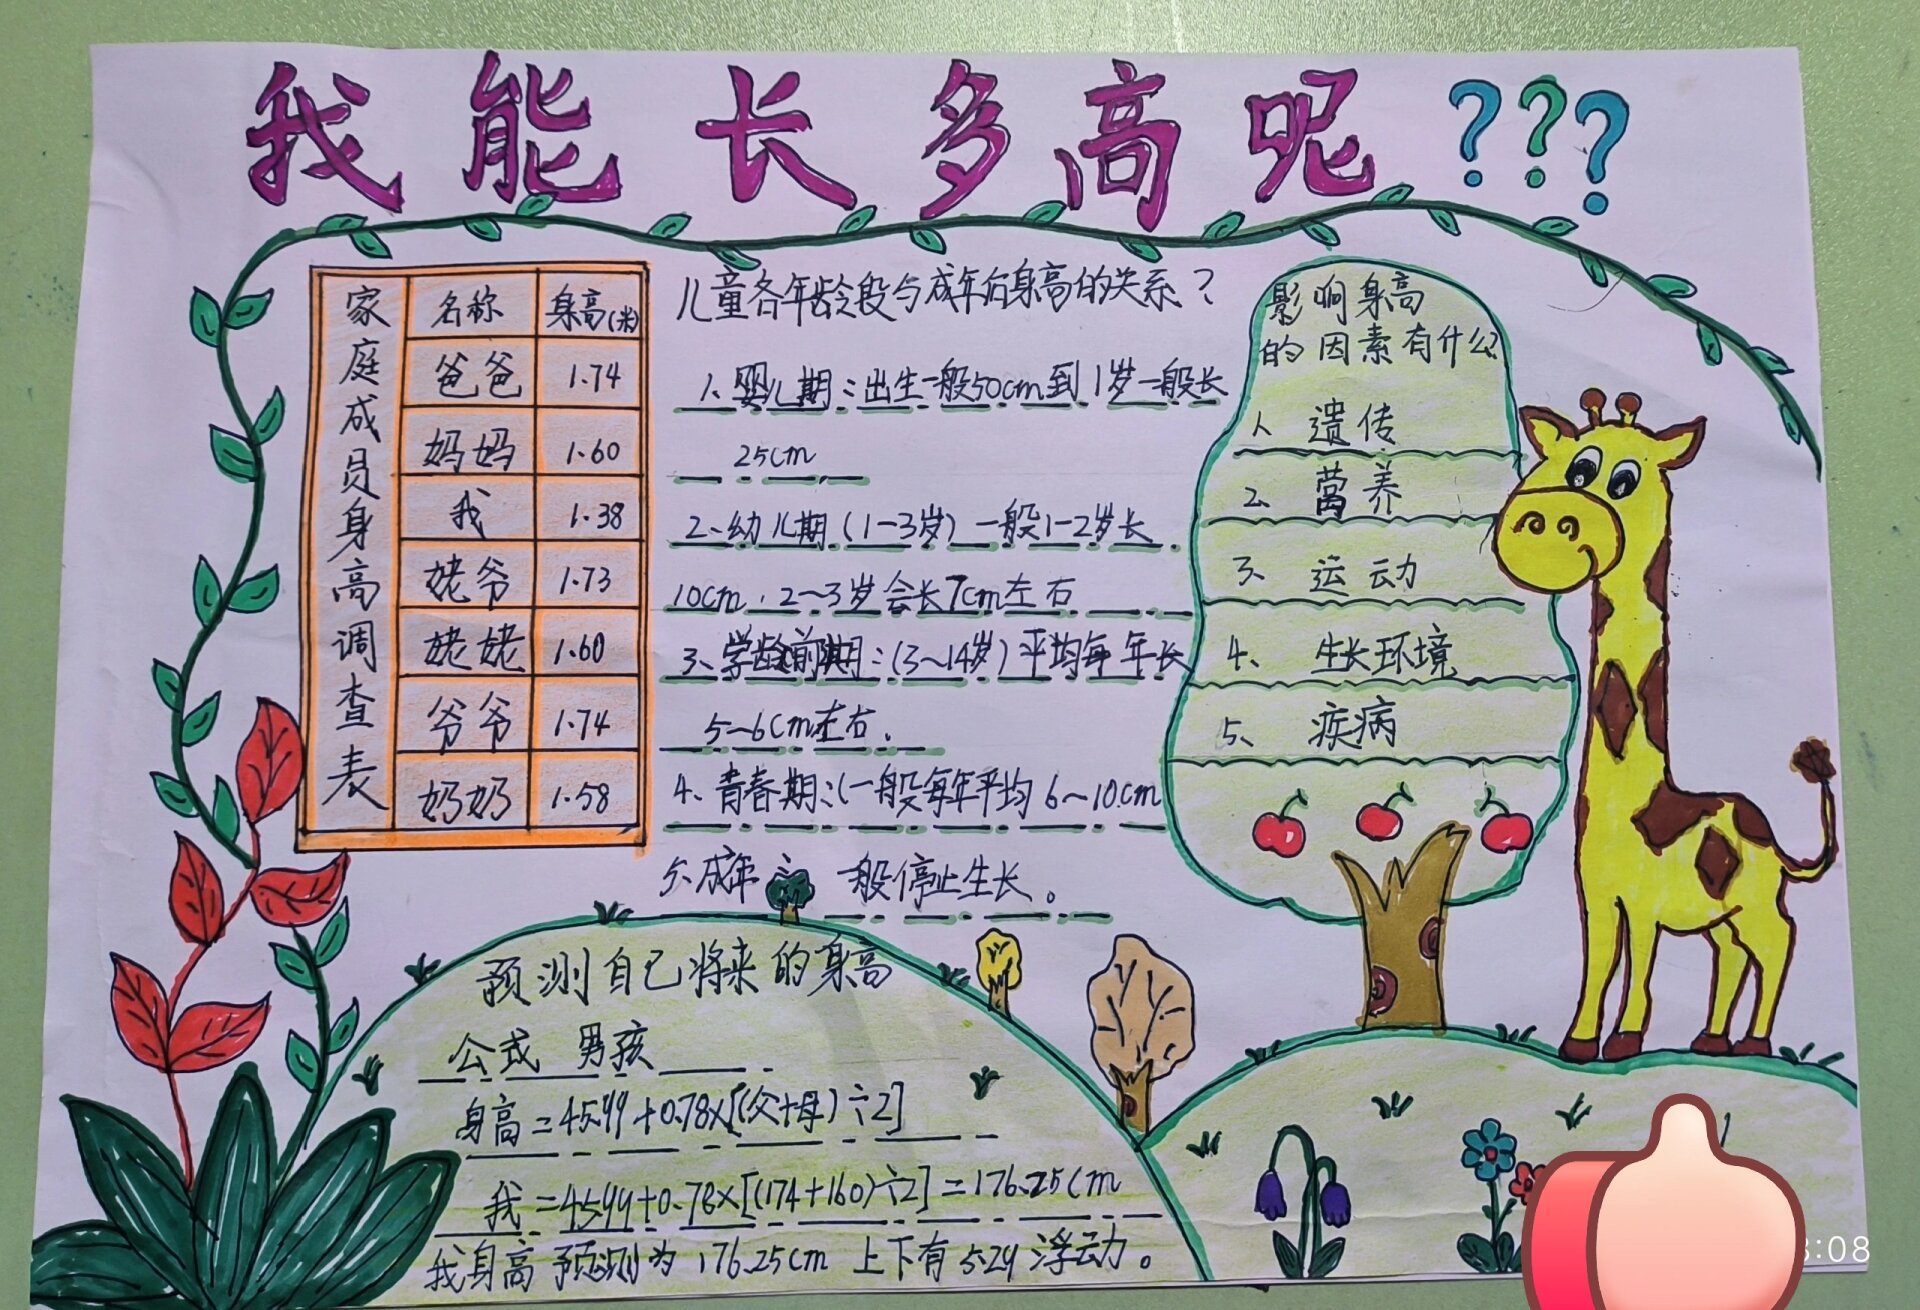 我能长多高呢???
家庭成员身高调查表
名称 身高(米)
爸爸 1.74
妈妈 1.60
我 1.38
姥爷 1.73
姥姥 1.60
爷爷 1.74
奶奶 1.58
儿童各年龄段与成年后身高的关系?
1、婴儿期:出生一般50cm到1岁一般长
25cm
2、幼儿期(1-3岁)一般1-2岁长
10cm,2~3岁会长7cm左右
3、学龄前期:(3~14岁)平均每年长
5~6cm左右.
4、青春期:(一般每年平均6~10cm
5、成年 一般停止生长。
影响身高
的因素有什么
1、遗传
2、营养
3、运动
4、生长环境
5、疾病
预测自己将来的身高
公式 男孩
身高=45.99+0.78×[(父+母)÷2]
我=45.99+0.78×[(174+160)÷2]=176.25cm
我身高预测为176.25cm上下有5.29浮动。
:08